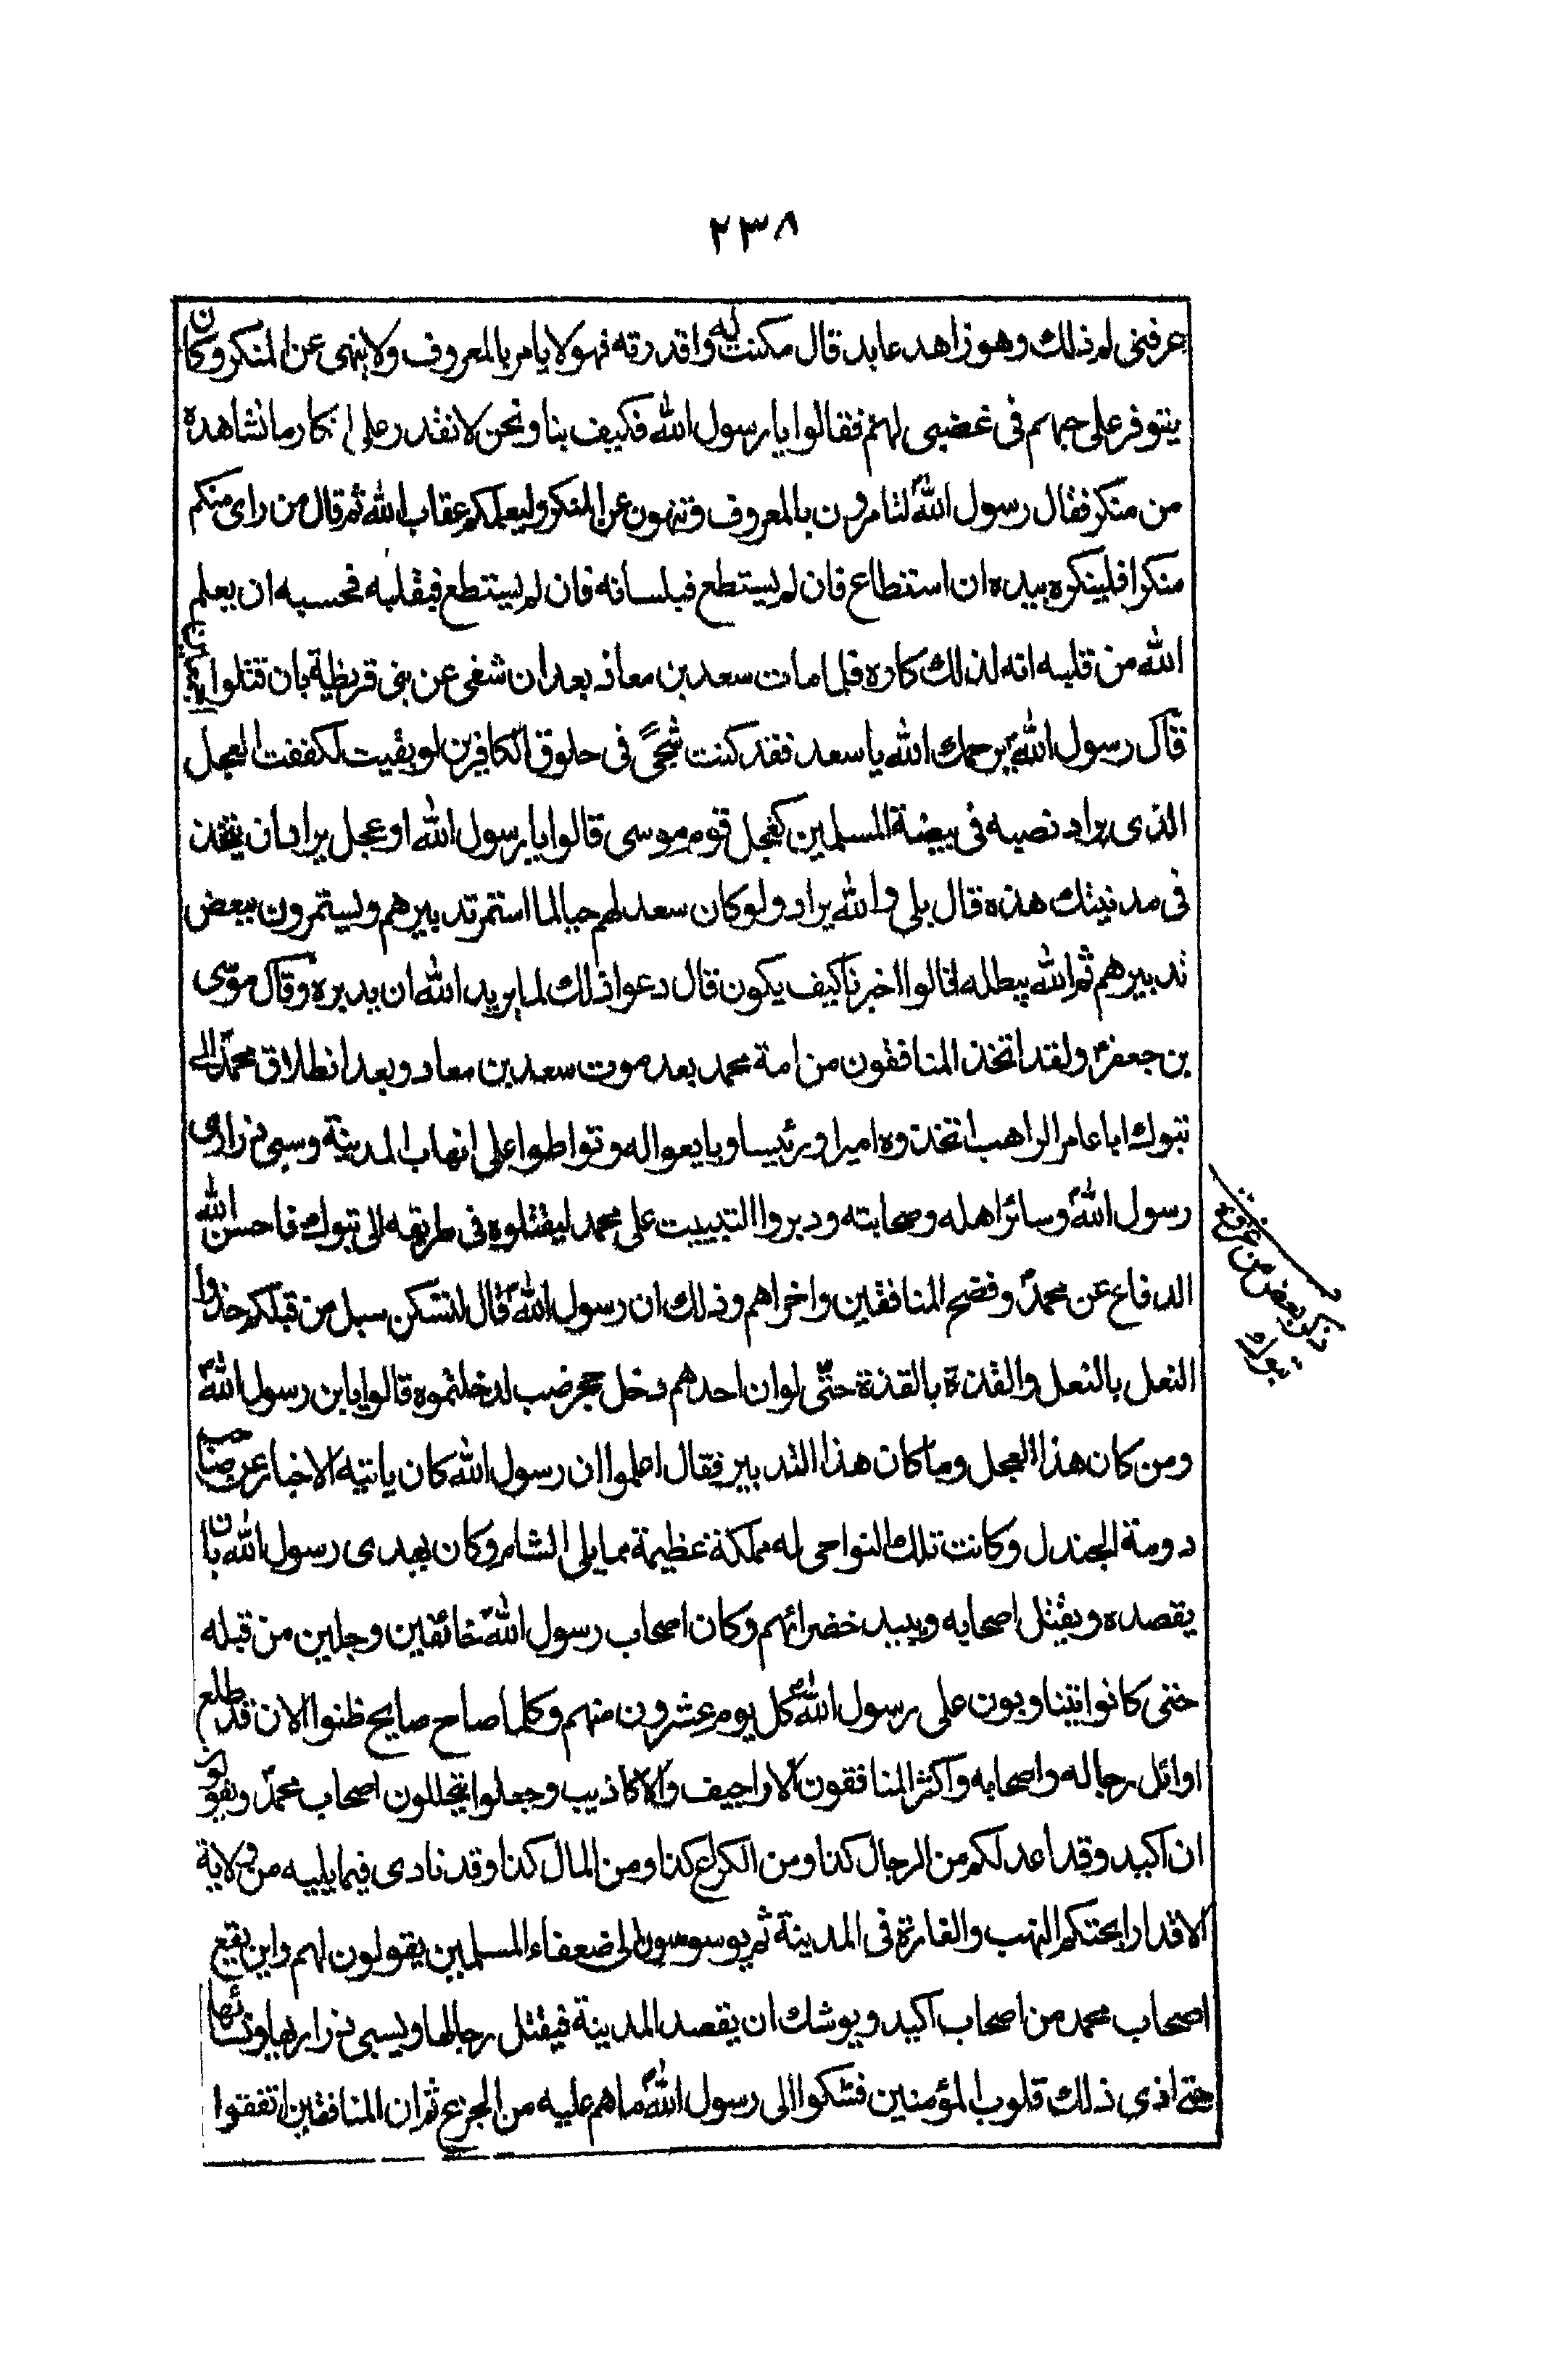 ٢٣٨
عرفنی لم ذلك وهو زاهد عابد قال مكنت له واقدرته فهو لا یامر بالمعروف ولا ینهی عن المنكر وكان
یتوفر علی حبهم فی غضبی لهم فقالوا یا رسول الله فكیف بنا ونحن لا نقدر علی انكار ما نشاهده
من منكر فقال رسول الله لتامرون بالمعروف وتنهون عن المنكر ولیعمكم عقاب الله ثم قال من رای منكم
منكرا فلینكره بیده ان استطاع فان لم یستطع فبلسانه فان لم یستطع فبقلبه فحسبه ان یعلم
الله من قلبه انه لذلك كاره فلما مات سعد بن معاذ بعد ان شفی عن بنی قریظة بان قتلوا اجمعین
قال رسول الله یرحمك الله یا سعد فقد كنت شجی فی حلوق الكافرین لو بقیت لكففت العجل
الذی یراد نصبه فی بیضة المسلمین كعجل قوم موسی قالوا یا رسول الله او عجل یراد ان یتخذ
فی مدینتك هذه قال بلی والله یراد ولو كان سعد لهم حیا لما استمر تدبیرهم ویستمرون ببعض
تدبیرهم ثم الله یبطله قالوا اخبرنا كیف یكون قال دعوا ذلك لما یرید الله ان یدبره وقال موسی
بن جعفر ولقد اتخذ المنافقون من امة محمد بعد موت سعد بن معاد وبعد انطلاق محمد الی
تبوك ابا عامر الراهب اتخذوه امیرا ورئیسا وبایعوا له وتواطوا علی انهاب المدینة وسبی ذراری
رسول الله وسائر اهله وصحابته ودبروا التبییت علی محمد لیقتلوه فی طریقه الی تبوك فاحسن الله
الدفاع عن محمد وفضح المنافقین واخزاهم وذلك ان رسول الله قال لتسلكن سبل من قبلكم حذو
النعل بالنعل والقذة بالقذة حتی لو ان احدهم دخل جحر ضب لدخلتموه قالوا یابن رسول الله
ومن كان هذا العجل وما كان هذا التدبیر فقال اعلموا ان رسول الله كان یاتیه الاخبار عن صاحب
دومة الجندل وكانت تلك النواحی له مملكة عظیمة مما یلی الشام وكان یهدی رسول الله بان
یقصده ویقتل اصحابه ویبید خضرائهم وكان اصحاب رسول الله خائفین وجلین من قبله
حتی كانوا یتناوبون علی رسول الله كل یوم عشرون منهم وكلما صاح صایح ظنوا الان قد طلع
اوائل رجاله واصحابه واكثر المنافقون الاراجیف والاكاذیب وجعلوا یتخللون اصحاب محمد ویقولون
ان اكید وقد اعد لكم من الرجال كذا ومن الكراع كذا ومن المال كذا وقد نادی فیما یلیه من ولایة
الا قد ابحتكم النهب والغارة فی المدینة ثم یوسوسون الی ضعفاء المسلمین یقولون لهم واین یقع
اصحاب محمد من اصحاب اكید ویوشك ان یقصد المدینة فیقتل رجالها ویسبی ذراریها ونسائها
حتی اذی ذلك قلوب المؤمنین فشكوا الی رسول الله ما هم علیه من الجزع ثم ان المنافقین اتفقوا
ذكر بعض من غزوة
تبوك